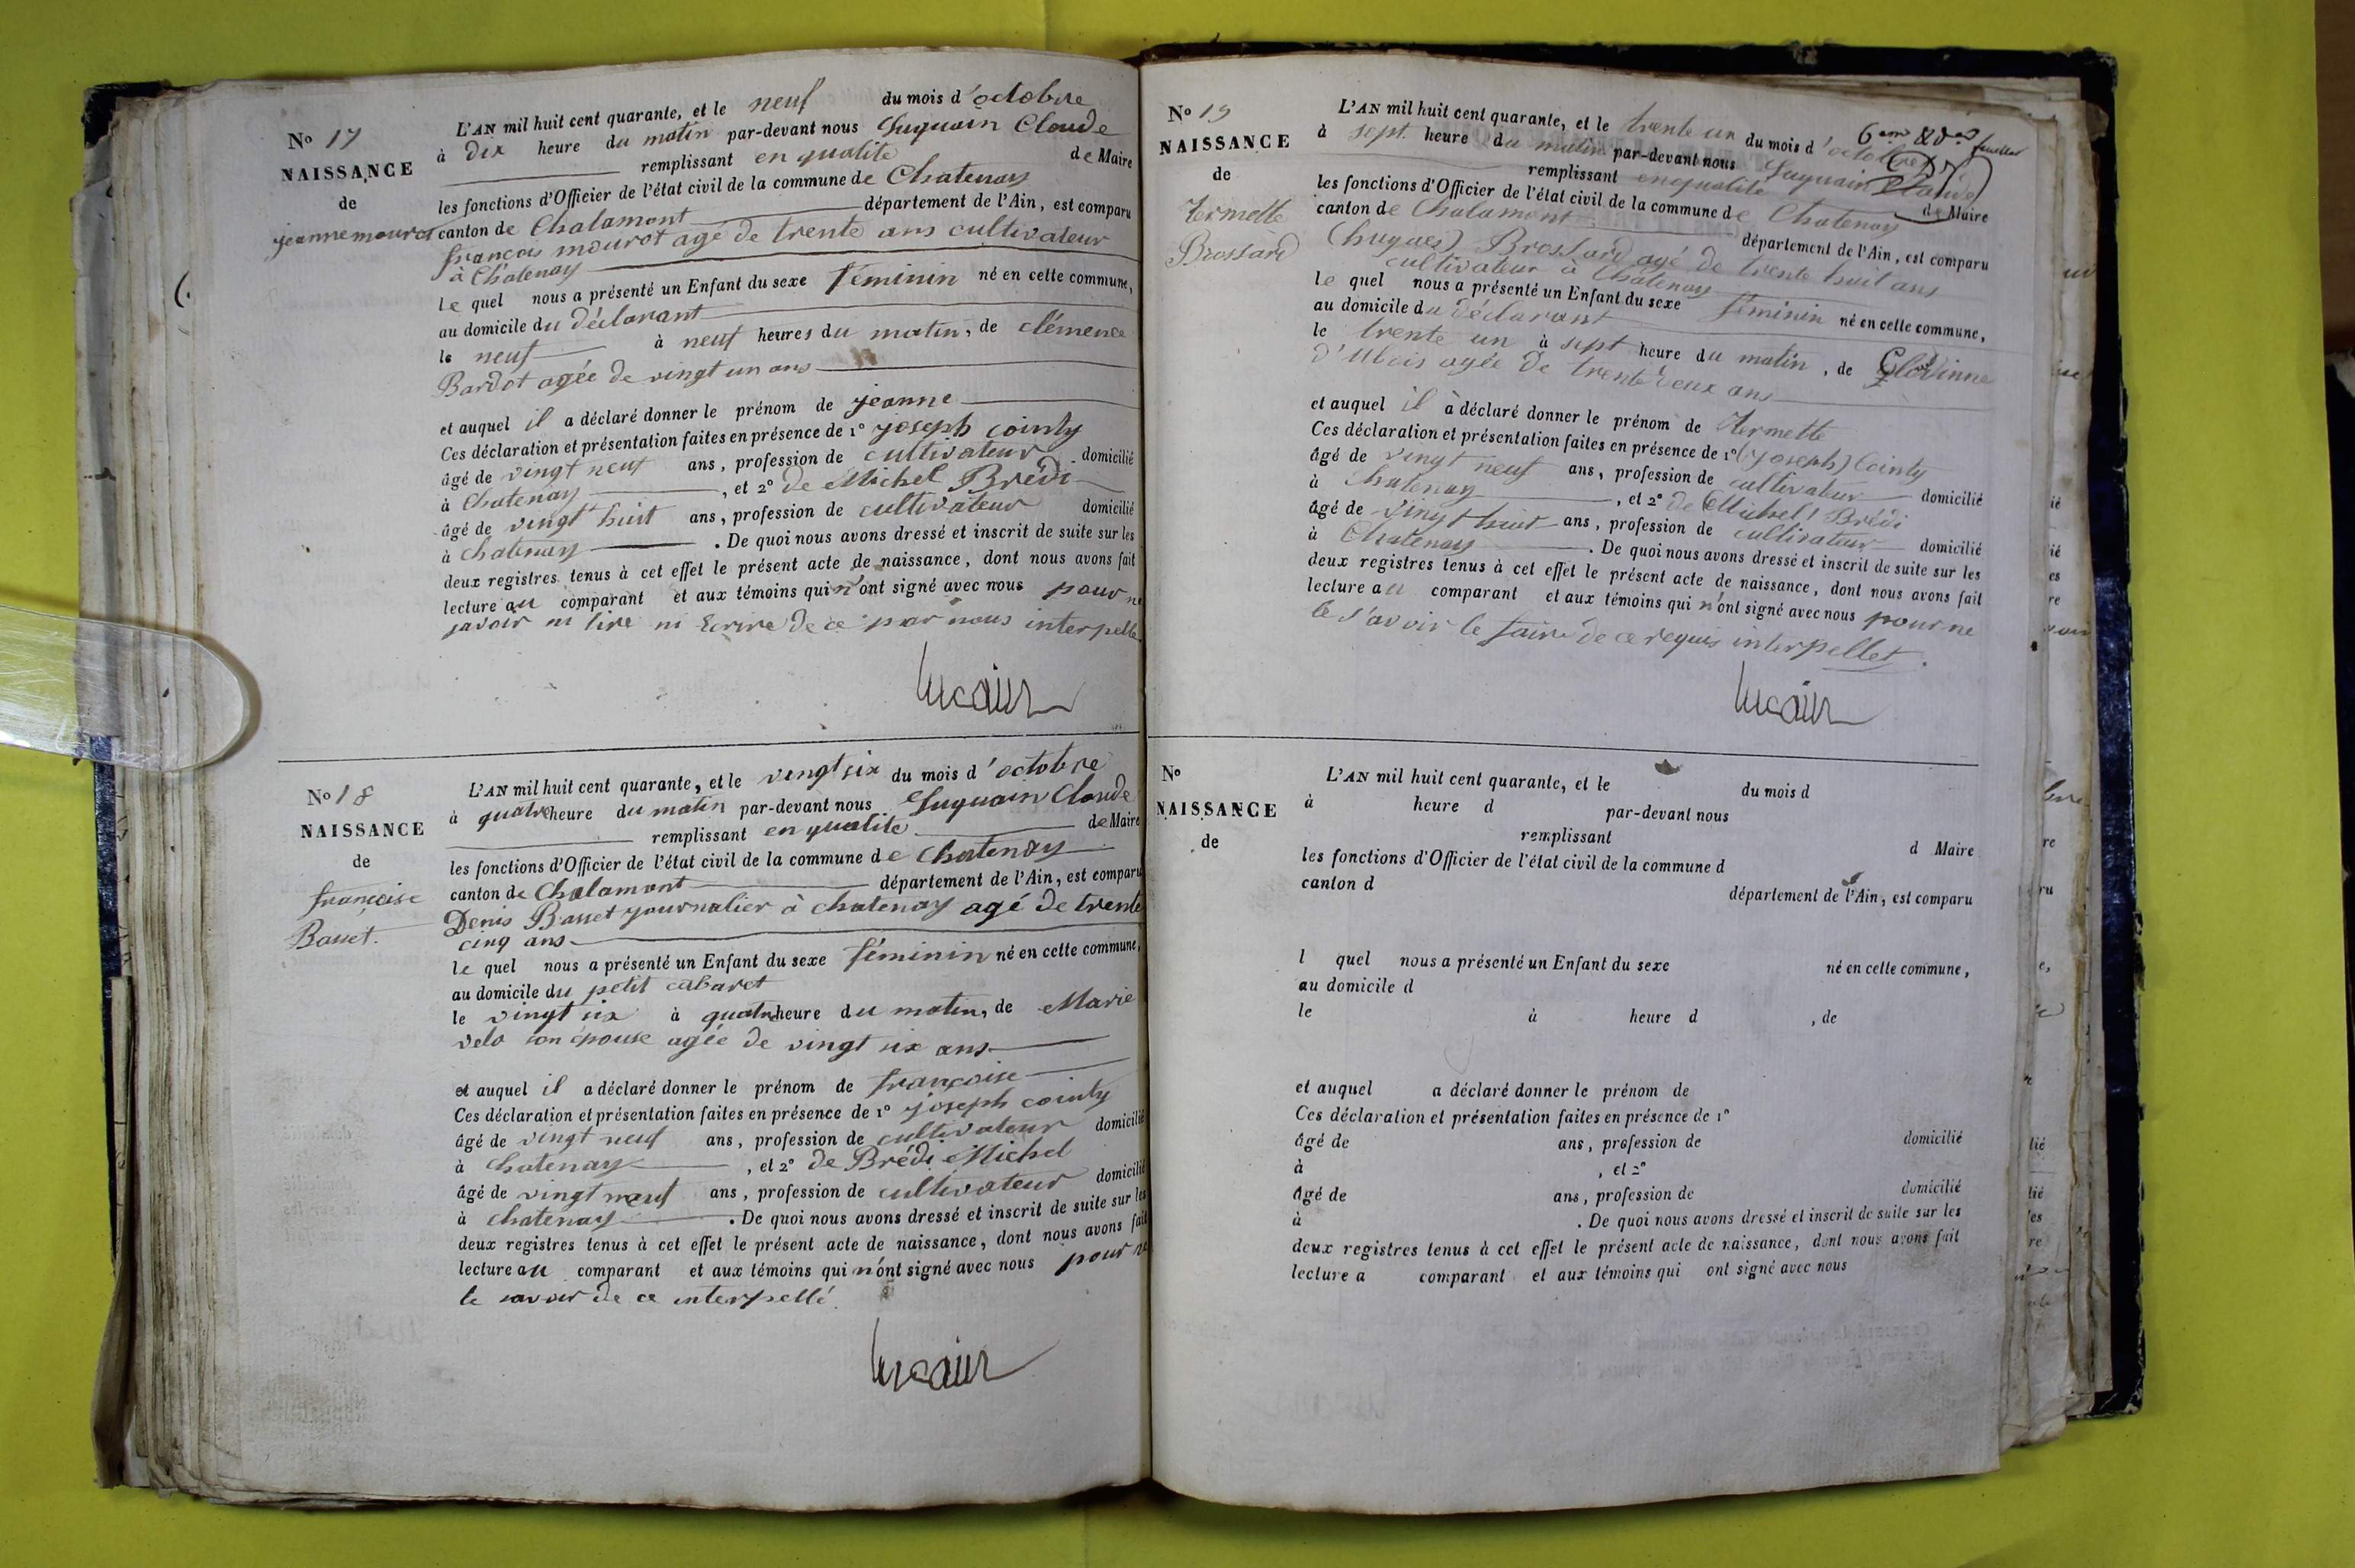 No 17
NAISSANCE
de
jeanne mourot
L'AN mil huit cent quarante, et le neuf du mois d'octobre
à dix heure du matin par-devant nous Luquain Claude
remplissant en qualité de Maire
les fonctions d'Officier de l'état civil de la commune de Chatenay
canton de Chalamont département de l'Ain, est comparu
françois mourot agé de trente ans cultivateur
à Chatenay
le quel nous a présenté un Enfant du sexe féminin né en cette commune,
au domicile du déclarant
le neuf à neuf heures du matin, de clémence
Bardot agée de vingt un ans
et auquel il a déclaré donner le prénom de jeanne
Ces déclaration et présentation faites en présence de 1° joseph cointy
âgé de vingt neuf ans, profession de cultivateur domicilié
à Chatenay, et 2° de Michel Brédi
âgé de vingt huit ans, profession de cultivateur domicilié
à chatenay. De quoi nous avons dressé et inscrit de suite sur les
deux registres tenus à cet effet le présent acte de naissance, dont nous avons fait
lecture au comparant et aux témoins qui n'ont signé avec nous pour ne
savoir ni lire ni Ecrire de ce par nous interpellé
No 18
NAISSANCE
de
françoise
Basset.
L'AN mil huit cent quarante, et le vingt six du mois d'octobre
à quatre heure du matin par-devant nous Luquain Claude
remplissant en qualité de Maire
les fonctions d'Officier de l'état civil de la commune de Chatenay
canton de Chalamont département de l'Ain, est comparu
Denis Basset journalier à chatenay agé de trente
cinq ans
le quel nous a présenté un Enfant du sexe féminin né en cette commune,
au domicile du petit cabaret
le vingt six à quatre heure du matin, de Marie
velo son épouse agée de vingt six ans
et auquel il a déclaré donner le prénom de françoise
Ces déclaration et présentation faites en présence de 1° joseph cointy
âgé de vingt neuf ans, profession de cultivateur domicilié
à chatenay, et 2° de Brédi Michel
âgé de vingt neuf ans, profession de cultivateur domicilié
à chatenay. De quoi nous avons dressé et inscrit de suite sur les
deux registres tenus à cet effet le présent acte de naissance, dont nous avons fait
lecture au comparant et aux témoins qui n'ont signé avec nous pour ne
le savoir de ce interpellé.
No 19
NAISSANCE
de
Brossard
L'AN mil huit cent quarante, et le trente un du mois d'octobre
à sept heure du matin par-devant nous Luquain Claude
remplissant en qualité de Maire
les fonctions d'Officier de l'état civil de la commune de Chatenay
canton de Chalamont département de l'Ain, est comparu
(hugues) Brossard agé de trente huit ans
cultivateur à Chatenay
le quel nous a présenté un Enfant du sexe féminin né en cette commune,
au domicile du déclarant
le trente un à sept heure du matin, de
d'Ubois agée de trente deux ans
et auquel il à déclaré donner le prénom de
Ces déclaration et présentation faites en présence de 1° (joseph) Cointy
âgé de vingt neuf ans, profession de cultivateur domicilié
à Chatenay, et 2° de Michel Brédi
âgé de vingt huit ans, profession de cultivateur domicilié
à Chatenay. De quoi nous avons dressé et inscrit de suite sur les
deux registres tenus à cet effet le présent acte de naissance, dont nous avons fait
lecture au comparant et aux témoins qui n'ont signé avec nous pour ne
le s'avoir le faire de ce requis interpellet.
No
NAISSANCE
de
L'AN mil huit cent quarante, et le du mois d
à heure d par-devant nous
remplissant d Maire
les fonctions d'Officier de l'état civil de la commune d
canton d département de l'Ain, est comparu
l quel nous a présenté un Enfant du sexe né en cette commune,
au domicile d
le à heure d , de
et auquel a déclaré donner le prénom de
Ces déclaration et présentation faites en présence de 1°
âgé de ans, profession de domicilié
à , et 2°
âgé de ans, profession de domicilié
à . De quoi nous avons dressé et inscrit de suite sur les
deux registres tenus à cet effet le présent acte de naissance, dont nous avons fait
lecture a comparant et aux témoins qui ont signé avec nous